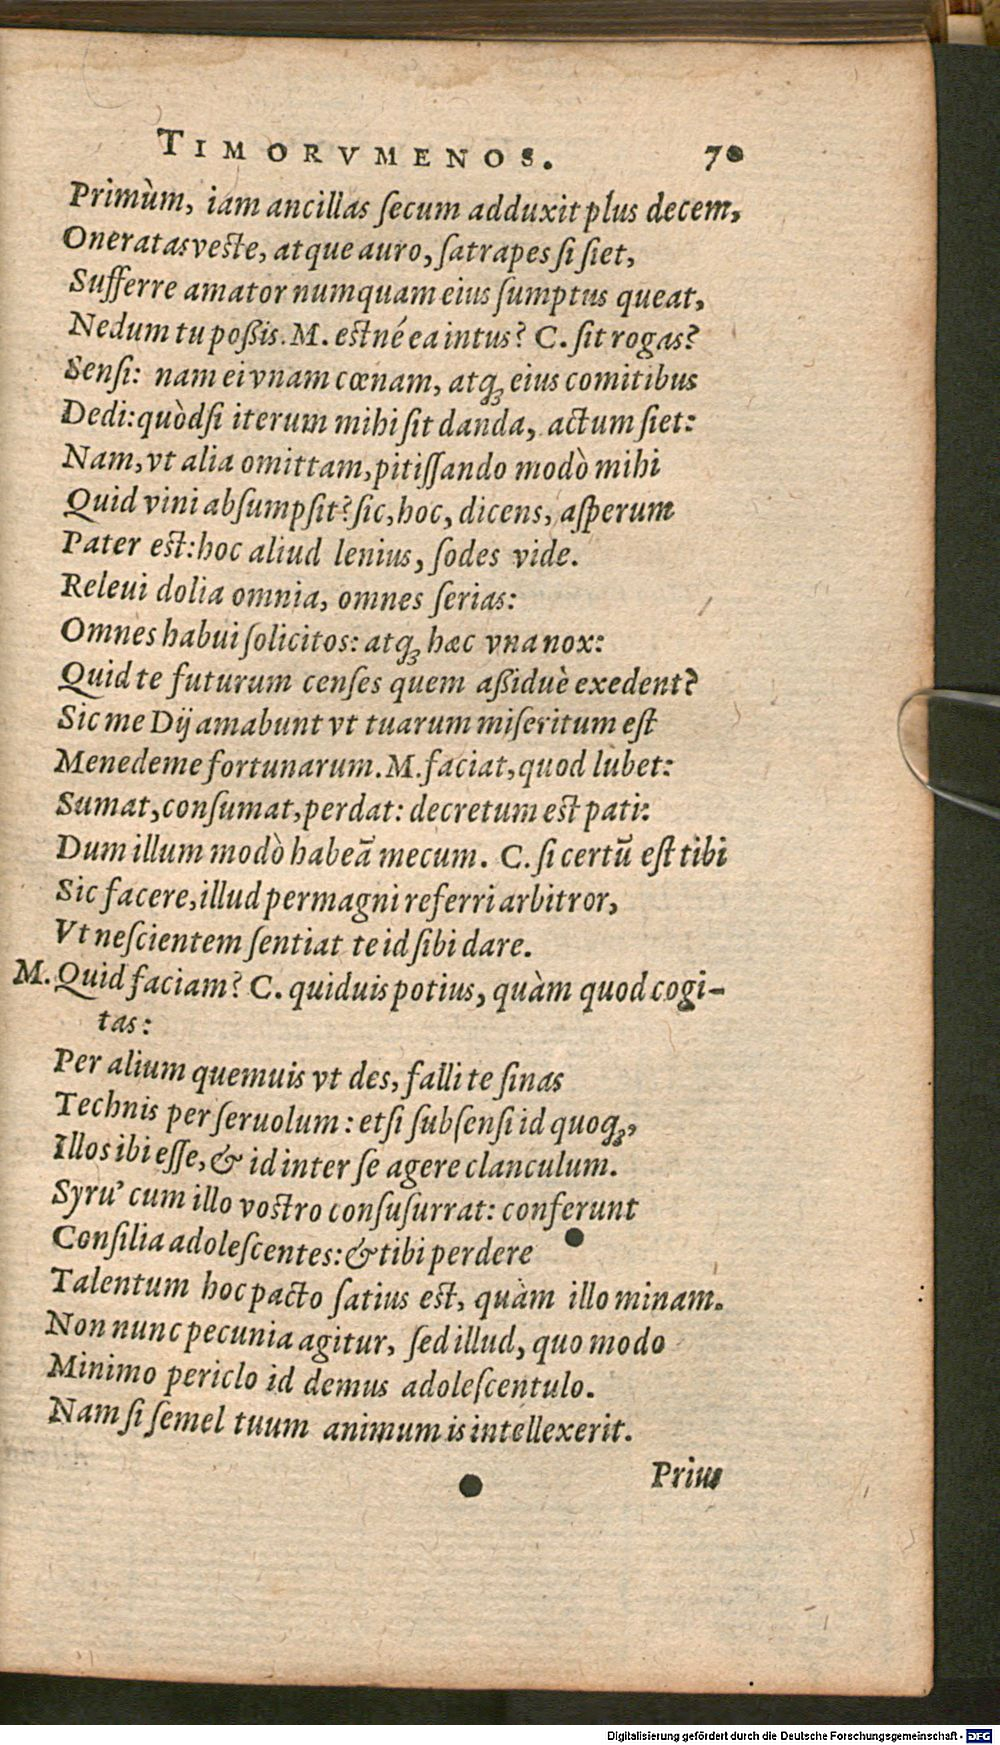 TIMORVMENOS. 70
Primùm, iam ancillas ſecum adduxit plus decem,
Oneratas veſte, atque auro, ſatrapes ſi ſiet,
Sufferre amator numquam eius ſumptus queat,
Nedum tu poßis. M. eſtné ea intus? C. ſit rogas?
Senſi: nam ei vnam cœnam, atq́ꝫ eius comitibus
Dedi: quòdſi iterum mihi ſit danda, actum ſiet:
Nam, vt alia omittam, pitiſſando modò mihi
Quid vini abſumpſit? ſic, hoc, dicens, aſperum
Pater eſt: hoc aliud lenius, ſodes vide.
Releui dolia omnia, omnes ſerias:
Omnes habui ſolicitos: atq́ꝫ hæc vna nox:
Quid te futurum cenſes quem aßiduè exedent?
Sic me Dij amabunt vt tuarum miſeritum eſt
Menedeme fortunarum. M. faciat, quod lubet:
Sumat, conſumat, perdat: decretum eſt pati:
Dum illum modò habeã mecum. C. ſi certũ eſt tibi
Sic facere, illud permagni referri arbitror,
Vt neſcientem ſentiat te id ſibi dare.
M. Quid faciam? C. quiduis potius, quàm quod cogi-
tas:
Per alium quemuis vt des, falli te ſinas
Technis per ſeruolum: etſi ſubſenſi id quoq́ꝫ,
Illos ibi eſſe, & id inter ſe agere clanculum.
Syru' cum illo voſtro conſuſurrat: conferunt
Conſilia adoleſcentes: & tibi perdere
Talentum hoc pacto ſatius eſt, quàm illo minam.
Non nunc pecunia agitur, ſed illud, quo modo
Minimo periclo id demus adoleſcentulo.
Nam ſi ſemel tuum animum is intellexerit.
Prius
Digitalisierung gefördert durch die Deutsche Forschungsgemeinschaft - DFG